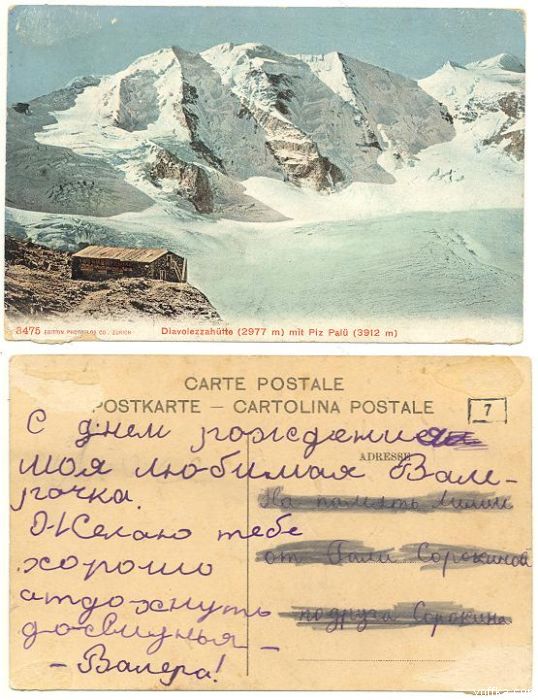 3475 EDITION PHOTOGLOB CO., ZÜRICH
Diavolezzahütte (2977 m) mit Piz Palü (3912 m)
CARTE POSTALE
POSTKARTE — CARTOLINA POSTALE
7
ADRESSE
С днем рождения
моя любимая Вале-
рочка.
Желаю тебе
хорошо
атдохнуть
досвиднья –
– Валера!
На память Лилии
от Гали Сорокиной
подруга Сорокина